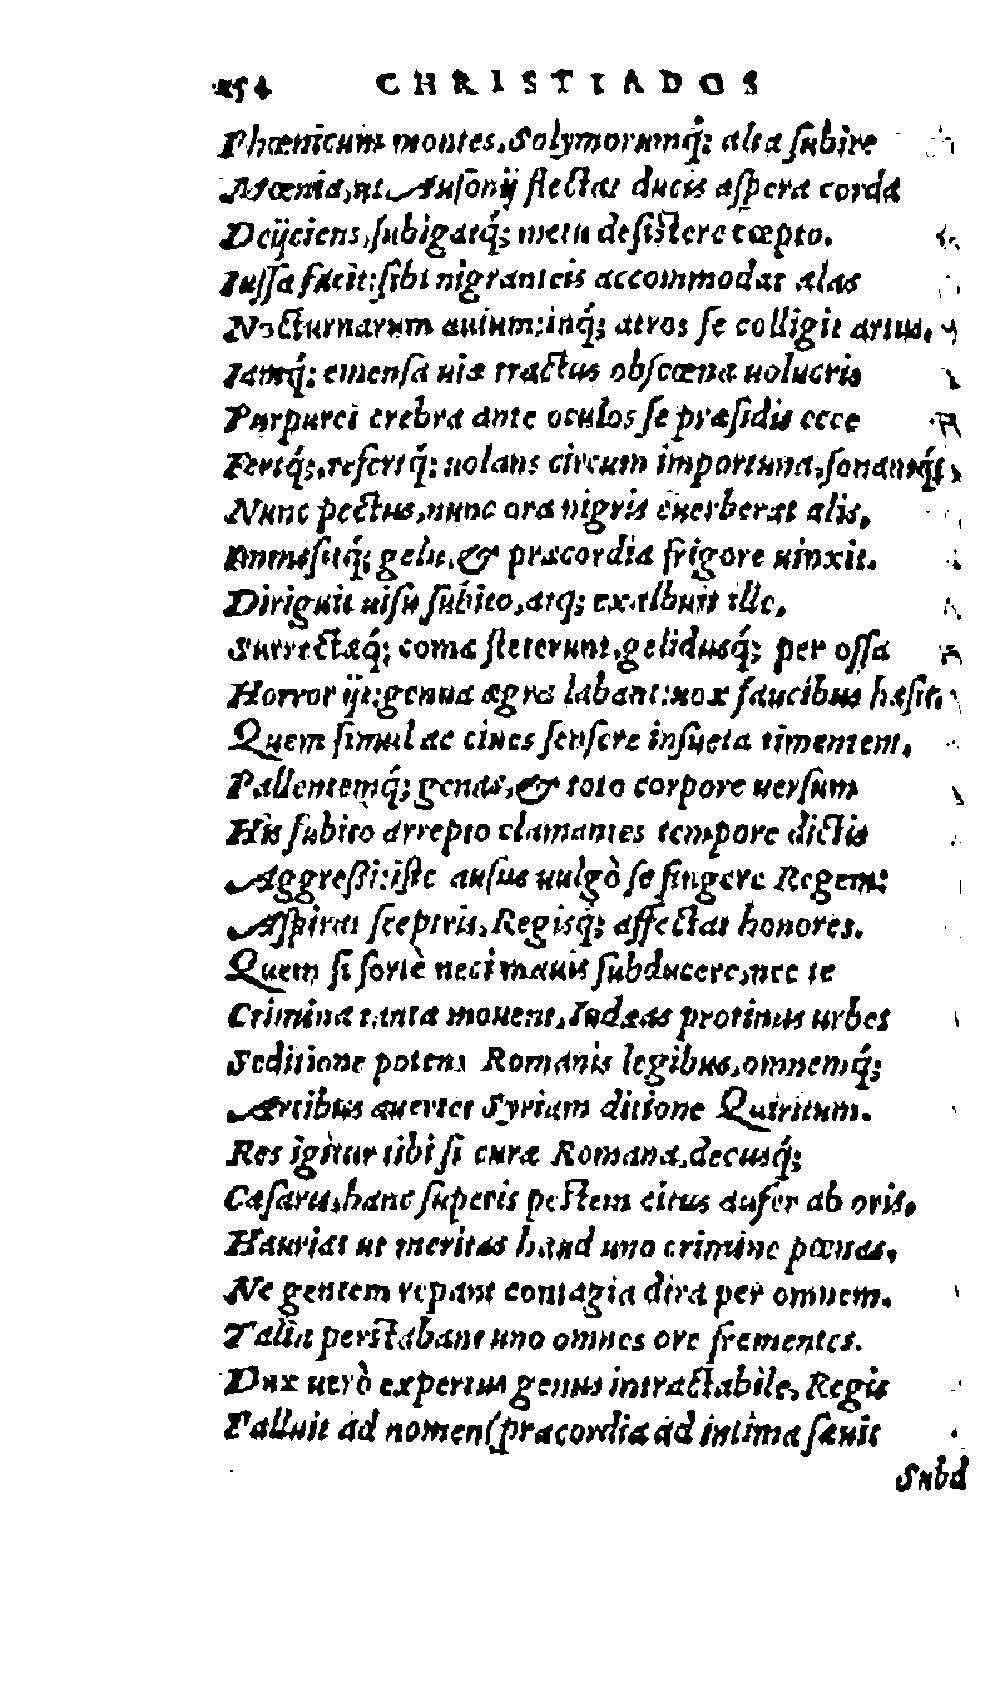 254 CHRISTIADOS
Phœnicum montes, Solymorumq́; alta ſubire
Mœnia, ut Auſonij flectat ducis aſpera corda
Deijciens, ſubigatq́; metu deſiſtere cœpto.
Iuſſa facit: ſibi nigranteis accommodat alas
Nocturnarum auium: inq́; atros ſe colligit artus.
Iamq́; emenſa uiæ tractus obſcœna uolucris
Purpurei crebra ante oculos ſe præſidis ecce
Fertq́;, refertq́; uolans circum importuna, ſonansq́;
Nunc pectus, nunc ora nigris euerberat alis,
Immiſitq́; gelu, & præcordia frigore uinxit.
Diriguit uiſu ſubito, atq; exalbuit ille,
Surrectæq́; comæ ſteterunt, gelidusq́; per oſſa
Horror ijt: genua ægra labant: uox faucibus hæſit.
Quem ſimul ac ciues ſenſere inſueta timentem,
Pallentemq́; genas, & toto corpore uerſum
His ſubito arrepto clamantes tempore dictis
Aggreſſi: iſte auſus uulgò ſe fingere Regem:
Aſpirat ſceptris, Regisq́; affectat honores.
Quem ſi fortè neci mauis ſubducere, nec te
Crimina tanta mouent, Iudæas protinus urbes
Seditione potens Romanis legibus, omnemq́;
Artibus auertet Syriam ditione Quiritum.
Res igitur tibi ſi curæ Romana, decusq́;
Cæſaris, hanc ſuperis peſtem citus aufer ab oris,
Hauriat ut meritas haud uno crimine pœnas,
Ne gentem repant contagia dira per omnem.
Talia perſtabant uno omnes ore frementes.
Dux uerò expertus genus intractabile, Regis
Palluit ad nomen (præcordia ad intima ſæuit
Subd